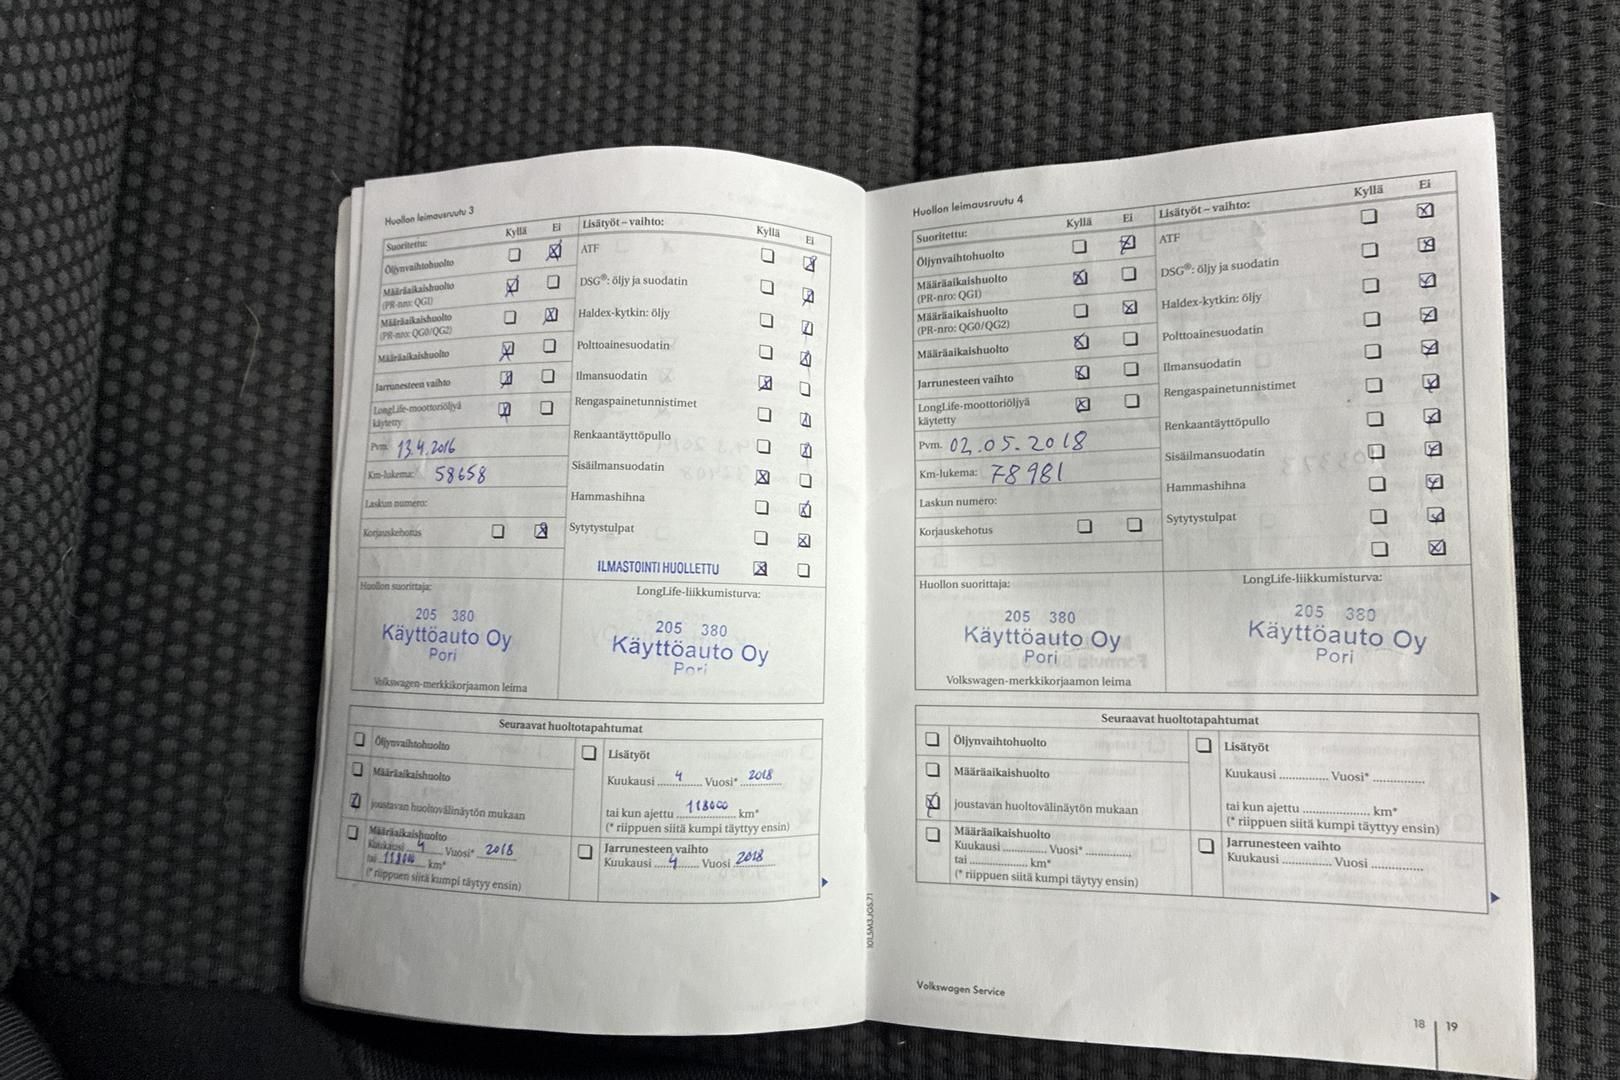 Huollon leimausruutu 3
Suoritettu: Kyllä Ei
Öljynvaihtohuolto
Määräaikaishuolto
(PR-nro: QG1)
Määräaikaishuolto
(PR-nro: QG0/QG2)
Määräaikaishuolto
Jarrunesteen vaihto
LongLife-moottoriöljyä
käytetty
Pvm. 13.4.2016
Km-lukema: 58658
Laskun numero:
Korjauskehotus
Lisätyöt – vaihto: Kyllä Ei
ATF
DSG®: öljy ja suodatin
Haldex-kytkin: öljy
Polttoainesuodatin
Ilmansuodatin
Rengaspainetunnistimet
Renkaantäyttöpullo
Sisäilmansuodatin
Hammashihna
Sytytystulpat
ILMASTOINTI HUOLLETTU
Huollon suorittaja:
205 380
Käyttöauto Oy
Pori
Volkswagen-merkkikorjaamon leima
LongLife-liikkumisturva:
205 380
Käyttöauto Oy
Pori
Seuraavat huoltotapahtumat
Öljynvaihtohuolto
Määräaikaishuolto
joustavan huoltovälinäytön mukaan
Määräaikaishuolto
Kuukausi 4 Vuosi* 2018
tai 118000 km*
(* riippuen siitä kumpi täytyy ensin)
Lisätyöt
Kuukausi 4 Vuosi* 2018
tai kun ajettu 118000 km*
(* riippuen siitä kumpi täyttyy ensin)
Jarrunesteen vaihto
Kuukausi 4 Vuosi 2018
101.5M3.JGS.71
Huollon leimausruutu 4
Suoritettu: Kyllä Ei
Öljynvaihtohuolto
Määräaikaishuolto
(PR-nro: QG1)
Määräaikaishuolto
(PR-nro: QG0/QG2)
Määräaikaishuolto
Jarrunesteen vaihto
LongLife-moottoriöljyä
käytetty
Pvm. 02.05.2018
Km-lukema: 78981
Laskun numero:
Korjauskehotus
Lisätyöt – vaihto: Kyllä Ei
ATF
DSG®: öljy ja suodatin
Haldex-kytkin: öljy
Polttoainesuodatin
Ilmansuodatin
Rengaspainetunnistimet
Renkaantäyttöpullo
Sisäilmansuodatin
Hammashihna
Sytytystulpat
Huollon suorittaja:
205 380
Käyttöauto Oy
Pori
Volkswagen-merkkikorjaamon leima
LongLife-liikkumisturva:
205 380
Käyttöauto Oy
Pori
Seuraavat huoltotapahtumat
Öljynvaihtohuolto
Määräaikaishuolto
joustavan huoltovälinäytön mukaan
Määräaikaishuolto
Kuukausi ............... Vuosi* ...............
tai ................... km*
(* riippuen siitä kumpi täytyy ensin)
Lisätyöt
Kuukausi ............... Vuosi* ...............
tai kun ajettu .................... km*
(* riippuen siitä kumpi täyttyy ensin)
Jarrunesteen vaihto
Kuukausi ............... Vuosi ...............
Volkswagen Service
18 | 19